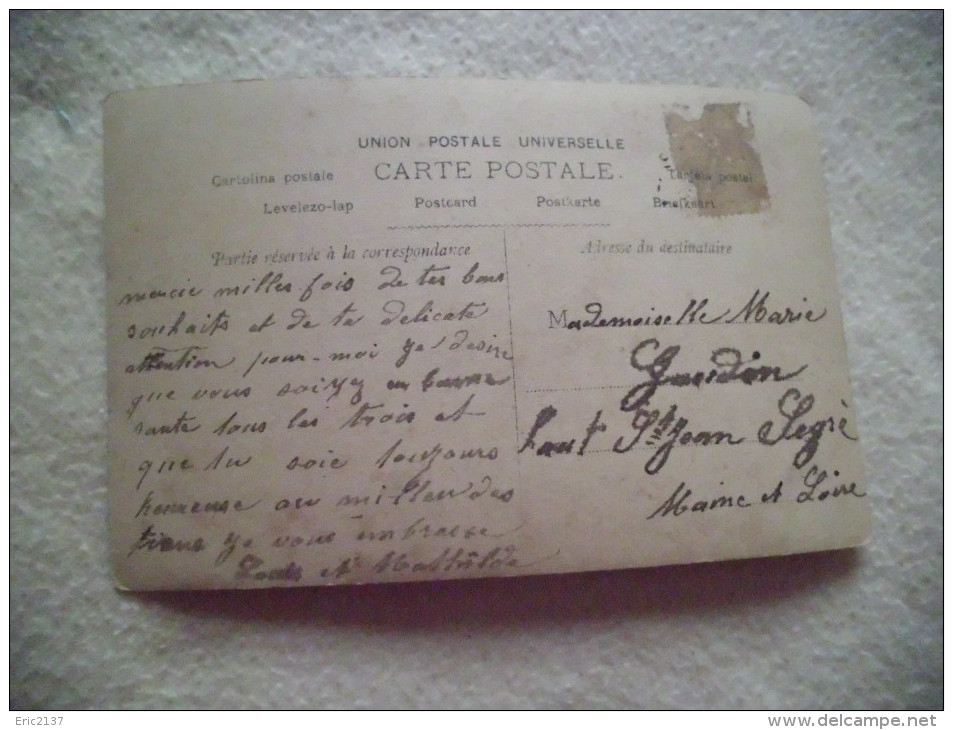 UNION POSTALE UNIVERSELLE
CARTE POSTALE.
Cartolina postale
Levelezo-lap Postcard Postkarte Briefkaart
Partie réservée à la correspondance
mercie milles fois de tes bons
souhaits et de ta delicate
attention pour-moi ye desire
que vous soiyez en bonne
sante tous les trois et
que tu soie toujours
heureuse au millieu des
tiens ye vous embrasse
Louis et Mathilde
Adresse du destinataire
Mademoiselle Marie
Gaudin
haut St Jean Segré
Maine et Loire
Eric2137
delcampe.net